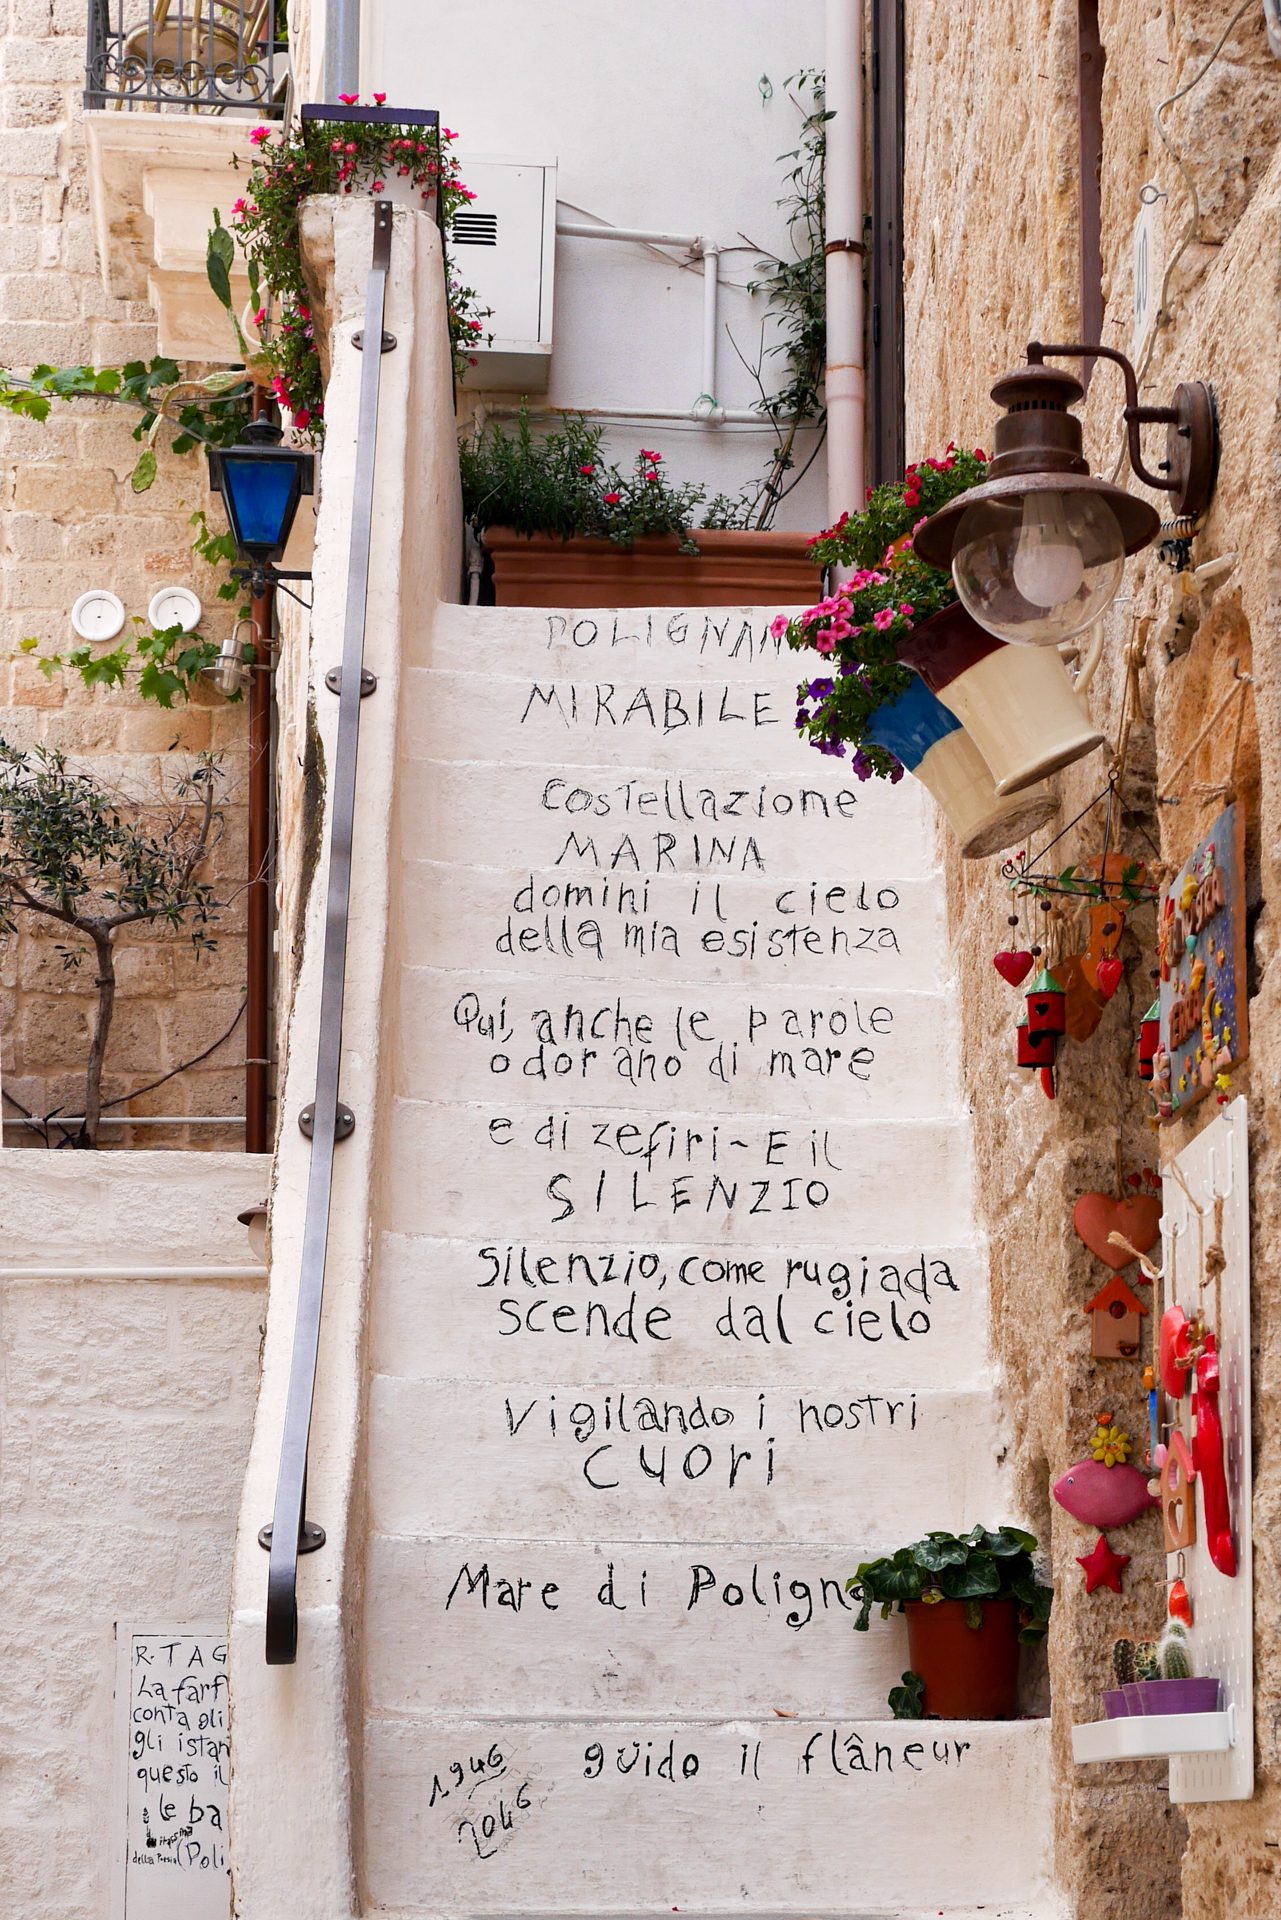 POLIGNAN
MIRABILE
Costellazione
MARINA
domini il cielo
della mia esistenza
Qui, anche le parole
odorano di mare
e di zefiri~ E il
SILENZIO
Silenzio, come rugiada
scende dal cielo
Vigilando i nostri
cuori
Mare di Poligna
güido il flâneur
1946
2046
R. TAG
La farf
conta gli
gli istan
questo il
e le ba
della Poesia (Poli